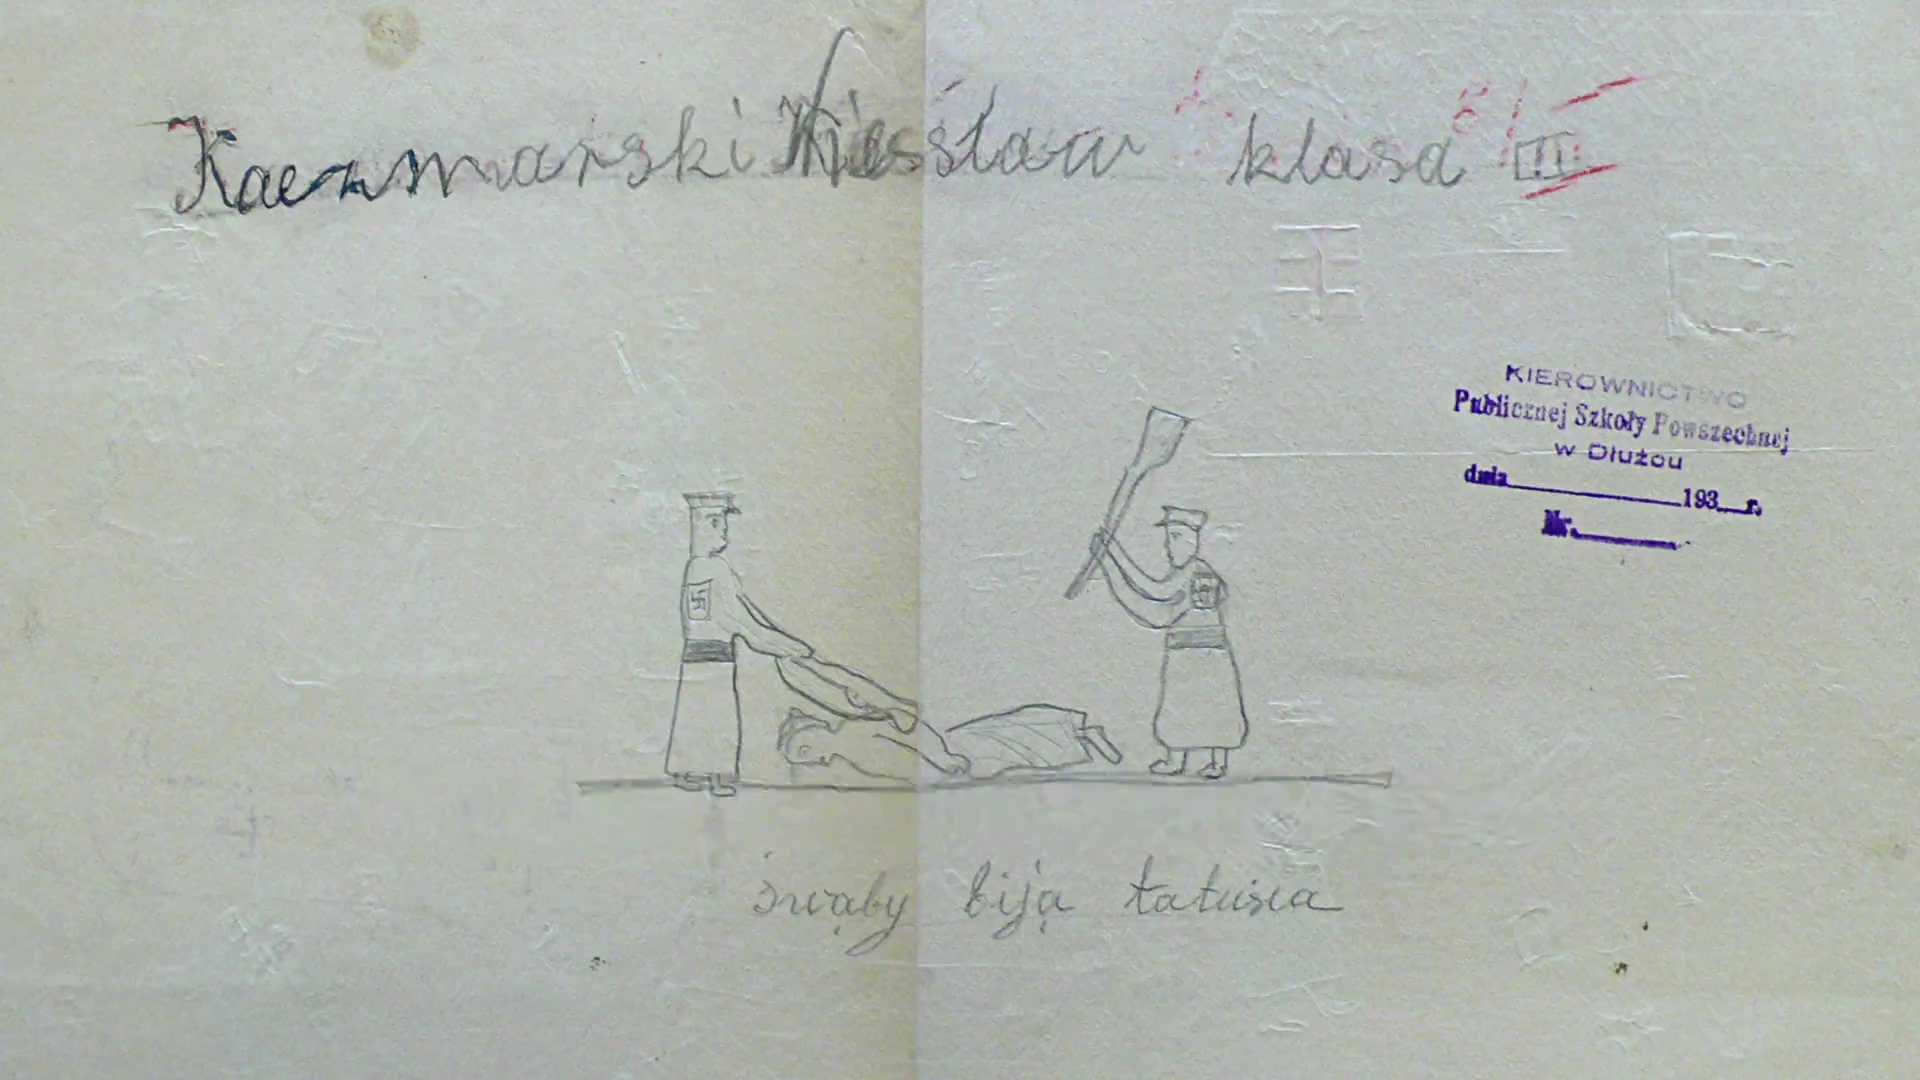 Kaczmarski Wiesław klasa III
KIEROWNICTWO
Publicznej Szkoły Powszechnej
w Dłużcu
dnia 193 r.
Nr.
śwąby biją tatusia